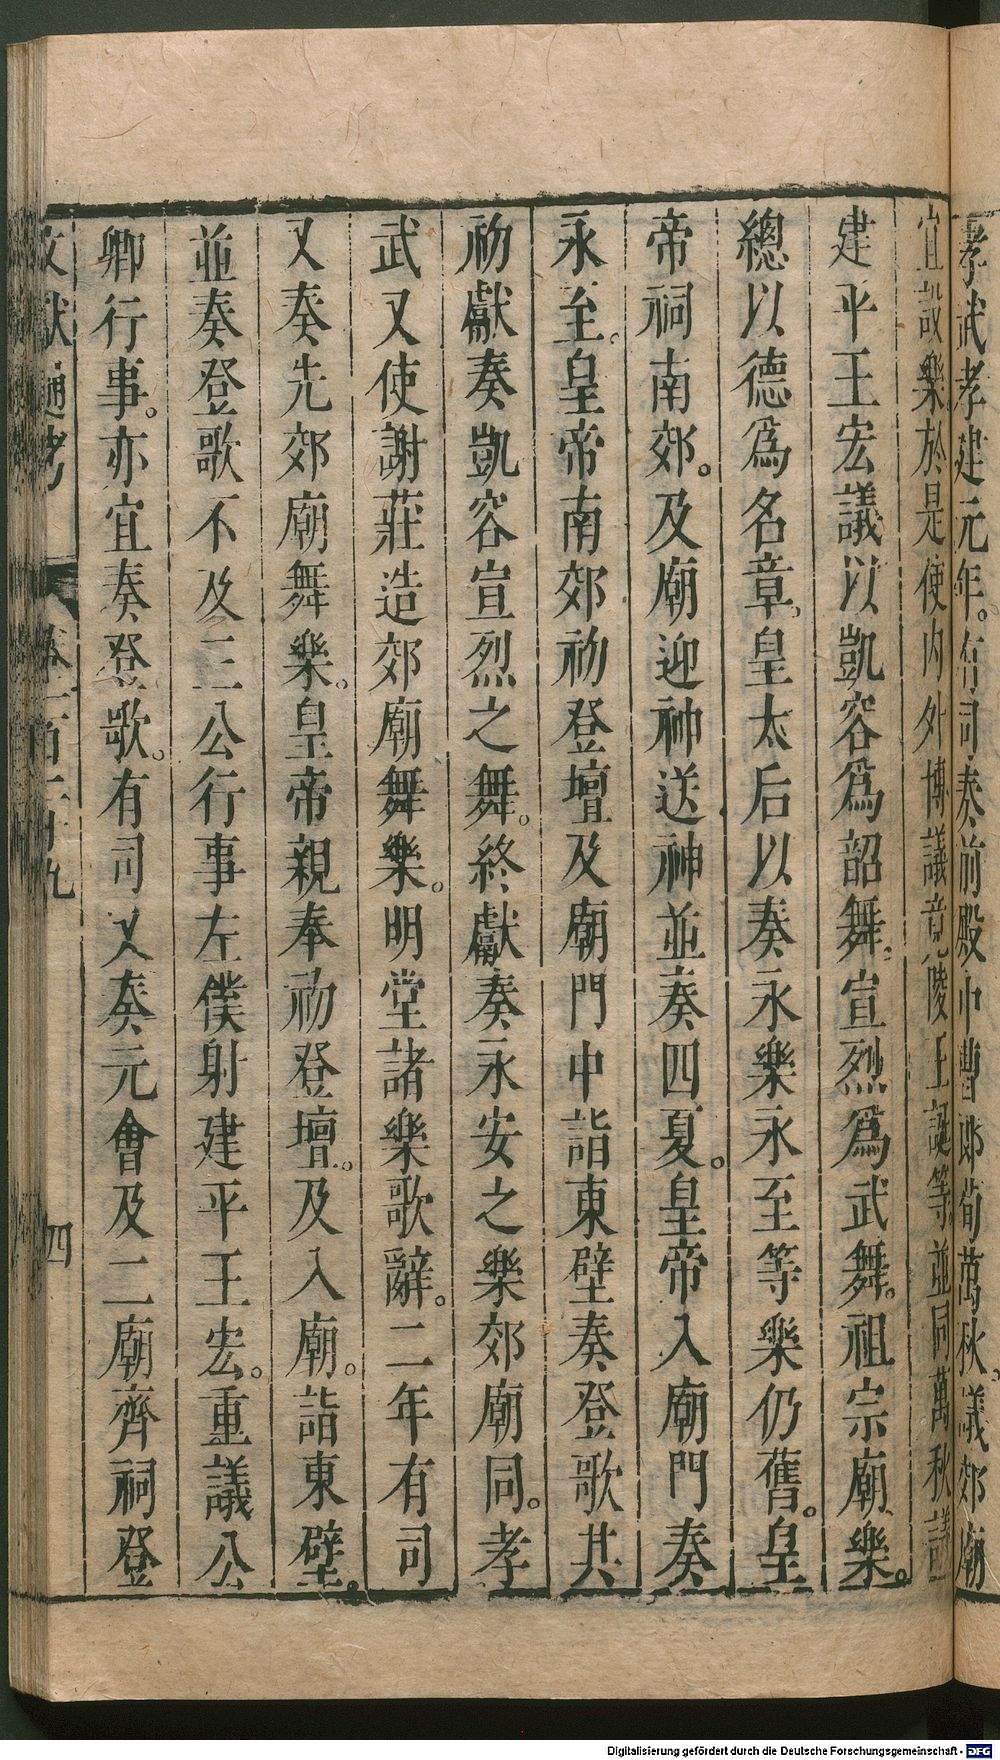 孝武孝建元年。有司奏前殿中曹郎荀萬秋。議郊廟
宜設樂。於是使內外博議。竟陵王誕等。並同萬秋議
建平王宏議以凱容爲韶舞。宣烈爲武舞。祖宗廟樂。
總以德爲名章。皇太后以奏永樂永至等樂仍舊。皇
帝祠南郊。及廟迎神送神並奏四夏。皇帝入廟門奏
永至。皇帝南郊初登壇及廟門中詣東壁奏登歌其
初獻奏凱容宣烈之舞。終獻奏永安之樂郊廟同。孝
武又使謝莊造郊廟舞樂。明堂諸樂歌辭。二年有司
又奏先郊廟舞樂。皇帝親奉初登壇。及入廟。詣東壁。
並奏登歌不及三公行事左僕射建平王宏。重議公
卿行事。亦宜奏登歌。有司又奏元會及二廟齊祠登
文獻通考 卷一百二十九 四
Digitalisierung gefördert durch die Deutsche Forschungsgemeinschaft - DFG